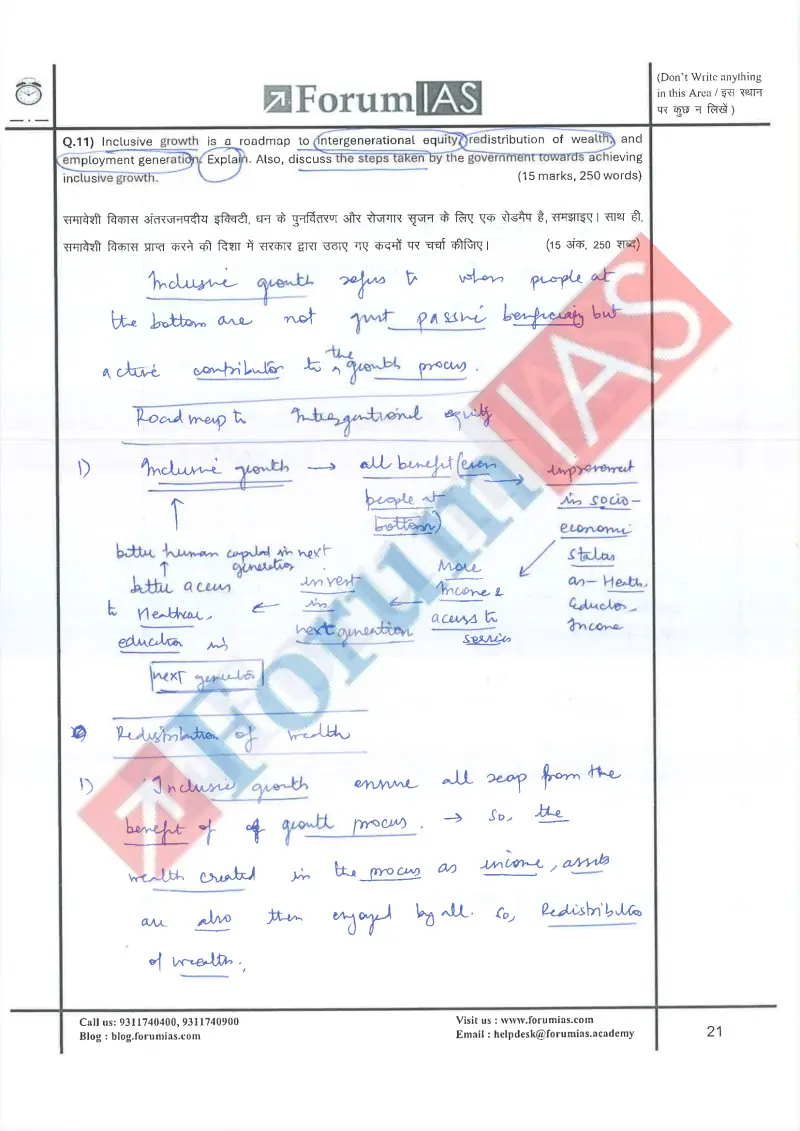 (Don't Write anything
in this Area / इस स्थान
पर कुछ न लिखें )
ForumIAS
Q.11) Inclusive growth is a roadmap to intergenerational equity, redistribution of wealth, and
employment generation. Explain. Also, discuss the steps taken by the government towards achieving
inclusive growth. (15 marks, 250 words)
समावेशी विकास अंतरजनपदीय इक्विटी, धन के पुनर्वितरण और रोजगार सृजन के लिए एक रोडमैप है, समझाइए। साथ ही,
समावेशी विकास प्राप्त करने की दिशा में सरकार द्वारा उठाए गए कदमों पर चर्चा कीजिए। (15 अंक, 250 शब्द)
Inclusive growth refers to when people at
the bottom are not just passive beneficiary but
active contributor to the growth process.
Roadmap to Intergenerational equity
1) Inclusive growth → all benefit (even
people at
bottom)
improvement
in socio-
economic
status
as - Health,
Education,
Income
More
Income &
access to
services
invest
in
next generation
better access
to Healthcare,
education in
next generation
better human capital in next
generation
2) Redistribution of wealth
1) Inclusive growth ensure all reap from the
benefit of growth process. → so, the
wealth created in the process as income, assets
are also then enjoyed by all. So, Redistribution
of wealth.
Call us: 9311740400, 9311740900
Blog : blog.forumias.com
Visit us : www.forumias.com
Email : helpdesk@forumias.academy
21
ForumIAS